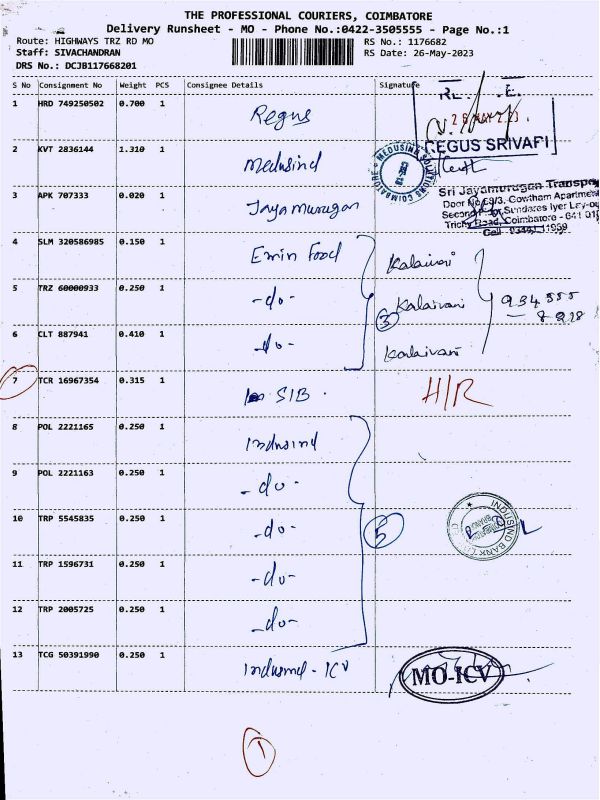 THE PROFESSIONAL COURIERS, COIMBATORE
Delivery Runsheet - MO - Phone No.:0422-3505555 - Page No.:1
Route: HIGHWAYS TRZ RD MO
RS No.: 1176682
Staff: SIVACHANDRAN
RS Date: 26-May-2023
DRS No.: DCJB117668201
S No Consignment No Weight PCS Consignee Details Signature
1 HRD 749250502 0.700 1 Regus
REGUS SRIVARI
2 KVT 2836144 1.310 1 Medusind
MEDUSIND SOLUTIONS COIMBATORE
3 APK 707333 0.020 1 Jayamurugan
Sri Jayamurugan Transport
Door No. 69/3, Gowtham Apartment
Second Sundares Iyer Lay-ou
Trichy Road, Coimbatore - 641 01
4 SLM 320586985 0.150 1 Emin Food Kalaivani
5 TRZ 60000933 0.250 1 -do- Kalaivani
3
934 555
8928
6 CLT 887941 0.410 1 -do- Kalaivani
7 TCR 16967354 0.315 1 SIB. H/R
8 POL 2221165 0.250 1 Indusind
9 POL 2221163 0.250 1 -do-
10 TRP 5545835 0.250 1 -do-
5
INDUSIND BANK
11 TRP 1596731 0.250 1 -do-
12 TRP 2005725 0.250 1 -do-
13 TCG 50391990 0.250 1 Indusind - ICV
MO-ICV
1